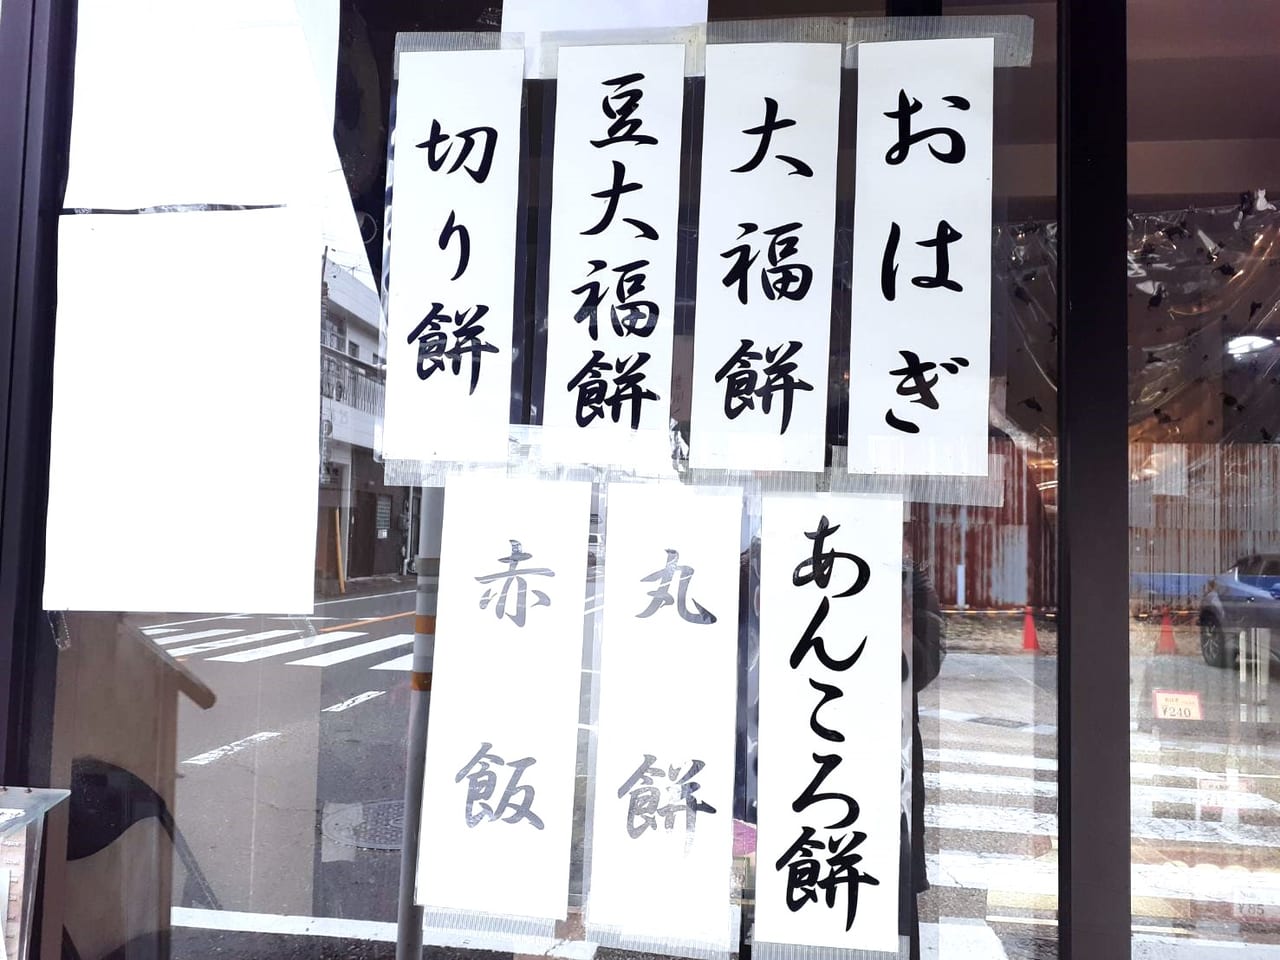 おはぎ
大福餅
豆大福餅
切り餅
あんころ餅
丸餅
赤飯
¥240